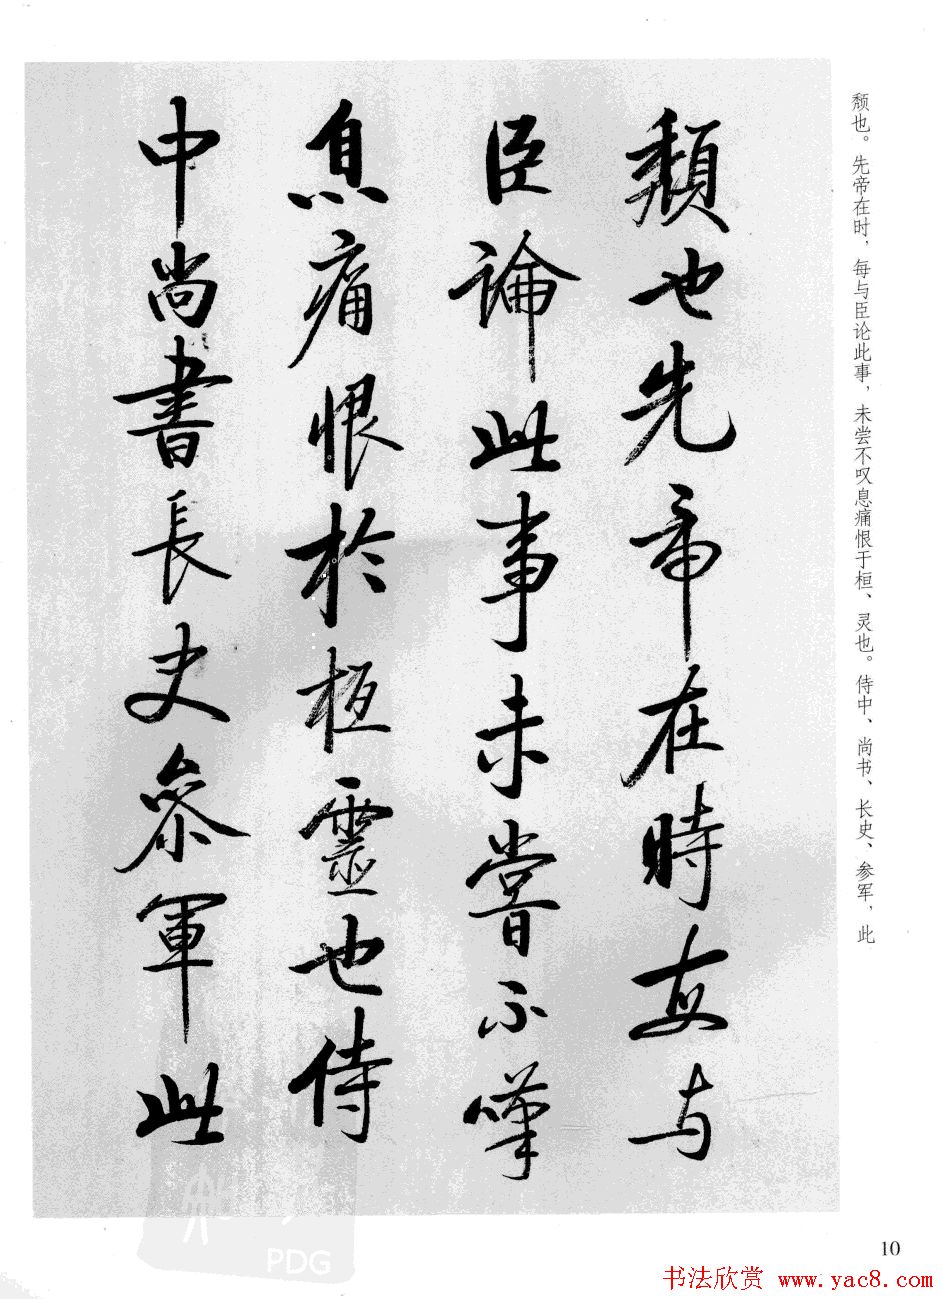 頹也先帝在時每与
臣論此事未嘗不嘆
息痛恨於桓靈也侍
中尚書長史叅軍此
颓也。先帝在时，每与臣论此事，未尝不叹息痛恨于桓、灵也。侍中、尚书、长史、参军，此
PDG
10
书法欣赏 www.yac8.com